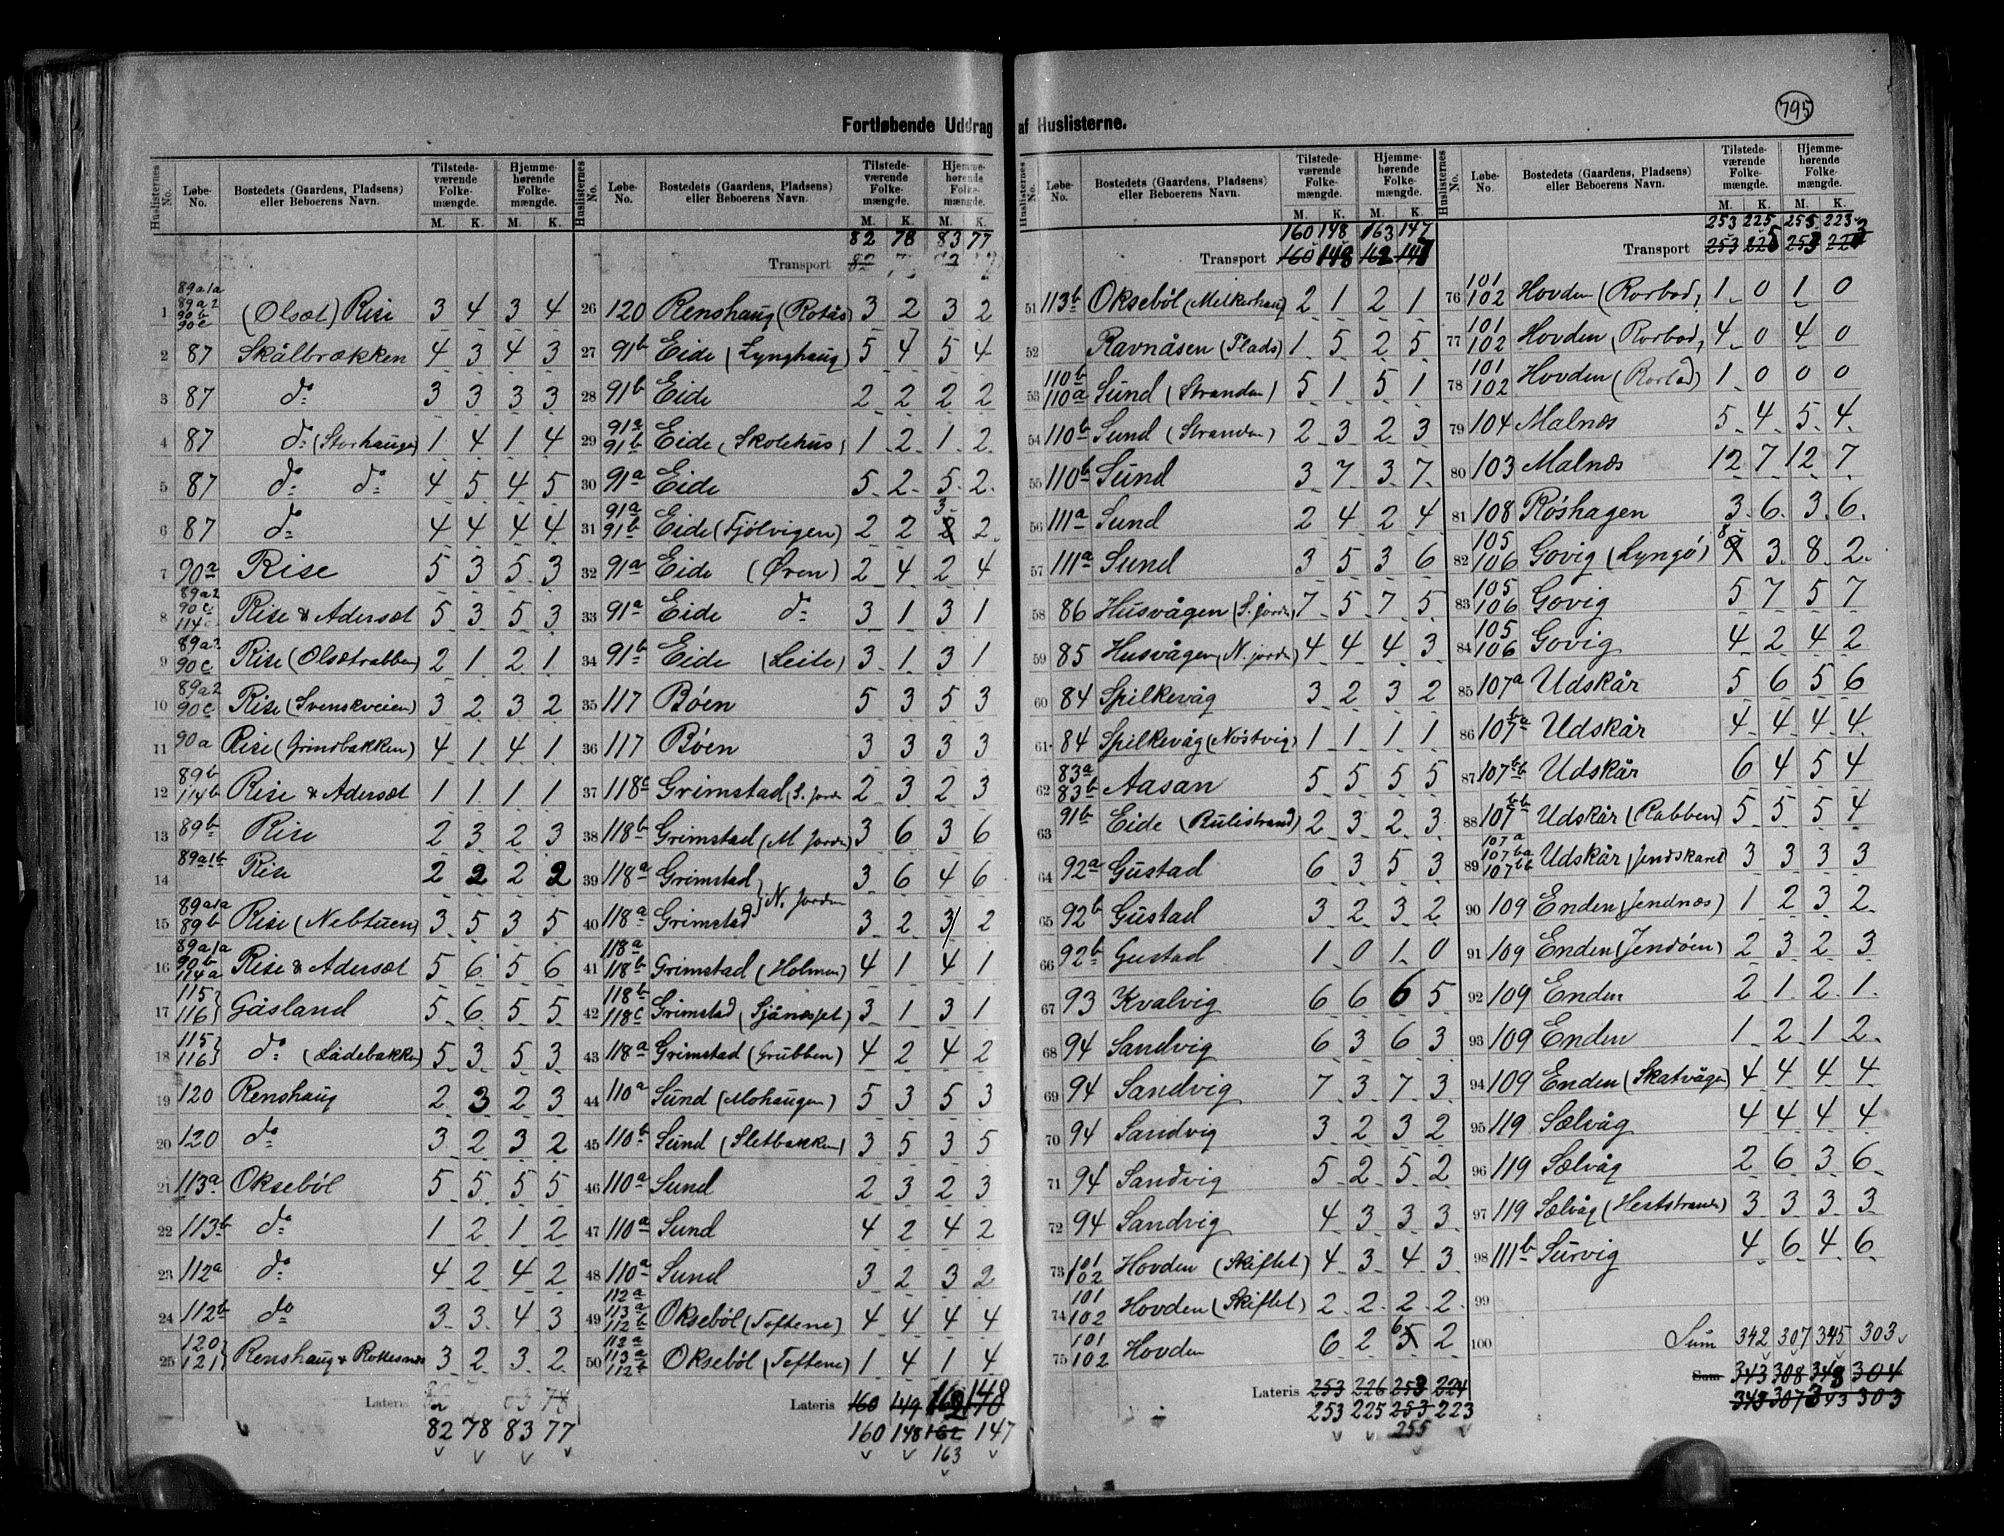 795
Fortløbende Uddrag af Huslisterne.
Huslisternes No. Løbe-No. Bostedets (Gaardens, Pladsens) eller Beboerens Navn. Tilstede-værende Folke-mængde. M. K. Hjemme-hørende Folke-mængde. M. K.
1 89a1a 89a2 90b 90c (Olsæt) Rise 3 4 3 4
2 87 Skålbrækken 4 3 4 3
3 87 do 3 3 3 3
4 87 do (Storhaugen) 1 4 1 4
5 87 do do 4 5 4 5
6 87 do 4 4 4 4
7 90a Rise 5 3 5 3
8 89a2 90c 114c Rise & Adersæt 5 3 5 3
9 89a2 90c Rise (Olsætrabben) 2 1 2 1
10 89a2 90c Rise (Svenskveien) 3 2 3 2
11 90a Rise (Grindbakken) 4 1 4 1
12 89b 114b Rise & Adersæt 1 1 1 1
13 89b Rise 2 3 2 3
14 89a1b Rise 2 2 2 2
15 89a1a 89b Rise (Nebtuen) 3 5 3 5
16 89a1a 90b 114a Rise & Adersæt 5 6 5 6
17 115 116 Gåsland 5 6 5 5
18 115 116 do (Ladebakken) 5 3 5 3
19 120 Renshaug 2 3 2 3
20 120 do 3 2 3 2
21 113a Oksebøl 5 5 5 5
22 113b do 1 2 1 2
23 112a do 4 2 4 2
24 112b do 3 3 4 3
25 120 121 Renshaug & Rokesnæs 3 2 3 2
Lateris
82 78 83 77
Huslisternes No. Løbe-No. Bostedets (Gaardens, Pladsens) eller Beboerens Navn. Tilstede-værende Folke-mængde. M. K. Hjemme-hørende Folke-mængde. M. K.
82 78 83 77
Transport
26 120 Renshaug (Rotås) 3 2 3 2
27 91b Eide (Lynghaug) 5 4 5 4
28 91b Eide 2 2 2 2
29 91a 91b Eide (Skolehus) 1 2 1 2
30 91a Eide 5 2 5 2
31 91a 91b Eide (Fjølvigen) 2 2 3 2
32 91a Eide (Øren) 2 4 2 4
33 91a Eide do 3 1 3 1
34 91b Eide (Leite) 3 1 3 1
35 117 Bøen 5 3 5 3
36 117 Bøen 3 3 3 3
37 118c Grimstad, S. Jorden 2 3 2 3
38 118b Grimstad (M Jorden) 3 6 3 6
39 118a Grimstad 3 6 4 6
N. Jorden
40 118a Grimstad 3 2 3 2
41 118a 118b Grimstad (Holmen) 4 1 4 1
42 118b 118c Grimstad (Sjånesset) 3 1 3 1
43 118a Grimstad (Grubben) 4 2 4 2
44 110a Sund (Mohaugen) 5 3 5 3
45 110b Sund (Sletbakken) 3 5 3 5
46 110a Sund 2 3 2 3
47 110a Sund 4 2 4 2
48 110a Sund 3 2 3 2
49 112a 113a 112b Oksebøl (Toftene) 4 4 4 4
50 112a 113a 112b Oksebøl (Toftene) 1 4 1 4
Lateris 160 149 162 148
160 148 162 147
163
Huslisternes No. Løbe-No. Bostedets (Gaardens, Pladsens) eller Beboerens Navn. Tilstede-værende Folke-mængde. M. K. Hjemme-hørende Folke-mængde. M. K.
160 148 163 147
Transport 160 148 162 147
51 113b Oksebøl (Melkerhaug) 2 1 2 1
52 Ravnåsen (Plads) 1 5 2 5
53 110b 110a Sund (Stranden) 5 1 5 1
54 110b Sund (Stranden) 2 3 2 3
55 110b Sund 3 7 3 7
56 111a Sund 2 4 2 4
57 111a Sund 3 5 3 6
58 86 Husvågen (S. jorden) 7 5 7 5
59 85 Husvågen (N. jorden) 4 4 4 3
60 84 Spilkevåg 3 2 3 2
61 84 Spilkevåg (Nøstvig) 1 1 1 1
62 83a 83b Aasan 5 5 5 5
63 91b Eide (Rulistrand) 2 3 2 3
64 92a Gustad 6 3 5 3
65 92b Gustad 3 2 3 2
66 92b Gustad 1 0 1 0
67 93 Kvalvig 6 6 6 5
68 94 Sandvig 6 3 6 3
69 94 Sandvig 7 3 7 3
70 94 Sandvig 3 2 3 2
71 94 Sandvig 5 2 5 2
72 94 Sandvig 4 3 3 3
73 101 102 Hovden (Skiftet) 4 3 4 3
74 101 102 Hovden (Skiftet) 2 2 2 2
75 101 102 Hovden 6 2 6 5 2
Lateris 253 226 253 224
253 225 253 223
255
Huslisternes No. Løbe-No. Bostedets (Gaardens, Pladsens) eller Beboerens Navn. Tilstede-værende Folke-mængde. M. K. Hjemme-hørende Folke-mængde. M. K.
253 225 255 223
Transport 253 225 253 223
76 101 102 Hovden (Rorbod) 1 0 1 0
77 101 102 Hovden (Rorbod) 4 0 4 0
78 101 102 Hovden (Rorbod) 1 0 0 0
79 104 Malnæs 5 4 5 4
80 103 Malnæs 12 7 12 7
81 108 Røshagen 3 6 3 6
82 105 106 Govig (Lyngø) 8 9 3 8 2
83 105 106 Govig 5 7 5 7
84 105 106 Govig 4 2 4 2
85 107a Udskår 5 6 5 6
86 107ba Udskår 4 4 4 4
87 107bb Udskår 6 4 5 4
88 107bb Udskår (Rabben) 5 5 5 4
89 107a 107ba 107bb Udskår (Jendskaret 3 3 3 3
90 109 Enden (Jendnæs) 1 2 3 2
91 109 Enden (Jendøen) 2 3 2 3
92 109 Enden 2 1 2 1
93 109 Enden 1 2 1 2
94 109 Enden (Skatvågen) 4 4 4 4
95 119 Sælvåg 4 4 4 4
96 119 Sælvåg 2 6 3 6
97 119 Sælvåg (Heststranden) 3 3 3 3
98 111b Survig 4 6 4 6
99
100 Sum 342 307 345 303
Sum 343 308 348 304
343 307 343 303